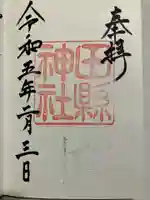 奉拝
田縣神社
令和五年二月三日